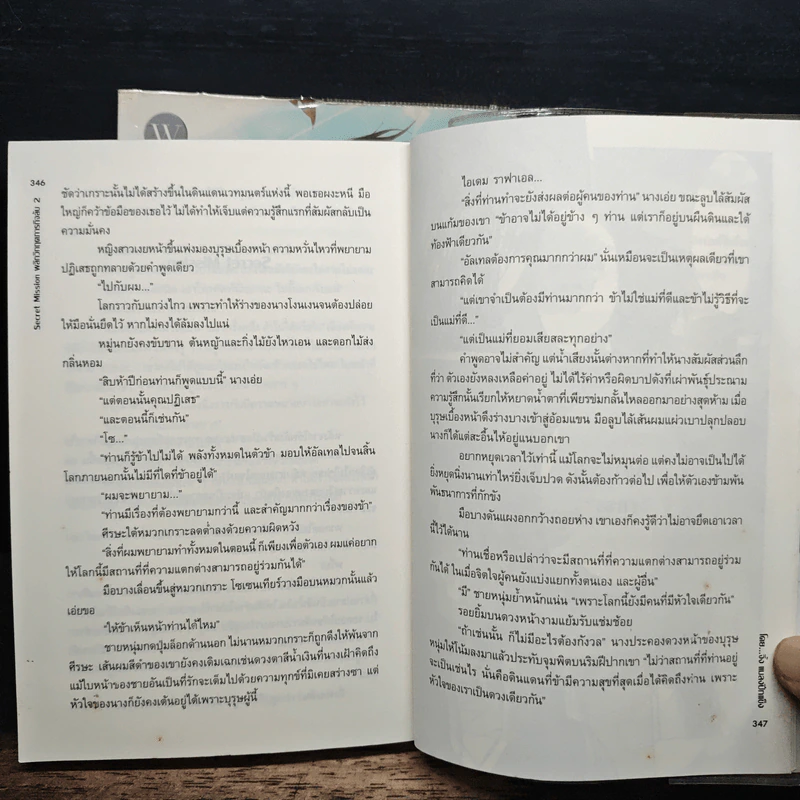 W
346
Secret Mission พลิกวิกฤตภารกิจลับ 2
ชัดว่าเกราะนั้นไม่ได้สร้างขึ้นในดินแดนเวทมนตร์แห่งนี้ พอเธอผงะหนี มือ
ใหญ่ก็คว้าข้อมือของเธอไว้ ไม่ได้ทำให้เจ็บแต่ความรู้สึกแรกที่สัมผัสกลับเป็น
ความมั่นคง
หญิงสาวเงยหน้าขึ้นเพ่งมองบุรุษเบื้องหน้า ความหวั่นไหวที่พยายาม
ปฏิเสธถูกทลายด้วยคำพูดเดียว
"ไปกับผม..."
โลกราวกับแกว่งไกว เพราะทำให้ร่างของนางโงนเงนจนต้องปล่อย
ให้มือนั่นยึดไว้ หากไม่คงได้ล้มลงไปแน่
หมู่นกยังคงขับขาน ต้นหญ้าและกิ่งไม้ยังไหวเอน และดอกไม้ส่ง
กลิ่นหอม
"สิบห้าปีก่อนท่านก็พูดแบบนี้" นางเอ่ย
"แต่ตอนนั้นคุณปฏิเสธ"
"และตอนนี้ก็เช่นกัน"
"โซ..."
"ท่านก็รู้ข้าไปไม่ได้ พลังทั้งหมดในตัวข้า มอบให้อัลเทลไปจนสิ้น
โลกภายนอกนั้นไม่มีที่ใดที่ข้าอยู่ได้"
"ผมจะพยายาม..."
"ท่านมีเรื่องที่ต้องพยายามกว่านี้ และสำคัญมากกว่าเรื่องของข้า"
ศีรษะใต้หมวกเกราะลดต่ำลงด้วยความผิดหวัง
"สิ่งที่ผมพยายามทำทั้งหมดในตอนนี้ ก็เพียงเพื่อตัวเอง ผมแค่อยาก
ให้โลกนี้มีสถานที่ที่ความแตกต่างสามารถอยู่ร่วมกันได้"
มือบางเลื่อนขึ้นสู่หมวกเกราะ โซเซนเทียร์วางมือบนหมวกนั้นแล้ว
เอ่ยขอ
"ให้ข้าเห็นหน้าท่านได้ไหม"
ชายหนุ่มกดปุ่มล็อกด้านนอก ไม่นานหมวกเกราะก็ถูกดึงให้พ้นจาก
ศีรษะ เส้นผมสีดำของเขายังคงเดิมเฉกเช่นดวงตาสีน้ำเงินที่นางเฝ้าคิดถึง
แม้ใบหน้าของชายอันเป็นที่รักจะเต็มไปด้วยความทุกข์ที่มิเคยสร่างซา แต่
หัวใจของนางก็ยังคงเต้นอยู่ได้เพราะบุรุษผู้นี้
ไอเดม ราฟาเอล...
"สิ่งที่ท่านทำจะยังส่งผลต่อผู้คนของท่าน" นางเอ่ย ขณะลูบไล้สัมผัส
บนแก้มของเขา "ข้าอาจไม่ได้อยู่ข้าง ๆ ท่าน แต่เราก็อยู่บนผืนดินและใต้
ท้องฟ้าเดียวกัน"
"อัลเทลต้องการคุณมากกว่าผม" นั่นเหมือนจะเป็นเหตุผลเดียวที่เขา
สามารถคิดได้
"แต่เขาจำเป็นต้องมีท่านมากกว่า ข้าไม่ใช่แม่ที่ดีและข้าไม่รู้วิธีที่จะ
เป็นแม่ที่ดี..."
"แต่เป็นแม่ที่ยอมเสียสละทุกอย่าง"
คำพูดอาจไม่สำคัญ แต่น้ำเสียงนั้นต่างหากที่ทำให้นางสัมผัสส่วนลึก
ที่ว่า ตัวเองยังหลงเหลือค่าอยู่ ไม่ได้ไร้ค่าหรือผิดบาปดังที่เผ่าพันธุ์ประณาม
ความรู้สึกนั้นเรียกให้หยาดน้ำตาที่เพียรข่มกลั้นไหลออกมาอย่างสุดห้าม เมื่อ
บุรุษเบื้องหน้าดึงร่างบางเข้าสู่อ้อมแขน มือลูบไล้เส้นผมแผ่วเบาปลุกปลอบ
นางก็ได้แต่สะอื้นไห้อยู่แนบอกเขา
อยากหยุดเวลาไว้เท่านี้ แม้โลกจะไม่หมุนต่อ แต่คงไม่อาจเป็นไปได้
ยิ่งหยุดนิ่งนานเท่าไหร่ยิ่งเจ็บปวด ดังนั้นต้องก้าวต่อไป เพื่อให้ตัวเองข้ามพ้น
พันธนาการที่กักขัง
มือบางดันแผงอกกว้างถอยห่าง เขาเองก็คงรู้ดีว่าไม่อาจยื้อเอาเวลา
นี้ไว้ได้นาน
"ท่านเชื่อหรือเปล่าว่าจะมีสถานที่ที่ความแตกต่างสามารถอยู่ร่วม
กันได้ ในเมื่อจิตใจผู้คนยังแบ่งแยกทั้งตนเอง และผู้อื่น"
"มี" ชายหนุ่มย้ำหนักแน่น "เพราะโลกนี้ยังมีคนที่มีหัวใจเดียวกัน"
รอยยิ้มบนดวงหน้างามแย้มรับแช่มช้อย
"ถ้าเช่นนั้น ก็ไม่มีอะไรต้องกังวล" นางประคองดวงหน้าของบุรุษ
หนุ่มให้โน้มลงมาแล้วประทับจุมพิตบนริมฝีปากเขา "ไม่ว่าสถานที่ที่ท่านอยู่
จะเป็นเช่นไร นั่นคือดินแดนที่ข้ามีความสุขที่สุดเมื่อได้คิดถึงท่าน เพราะ
หัวใจของเราเป็นดวงเดียวกัน"
347